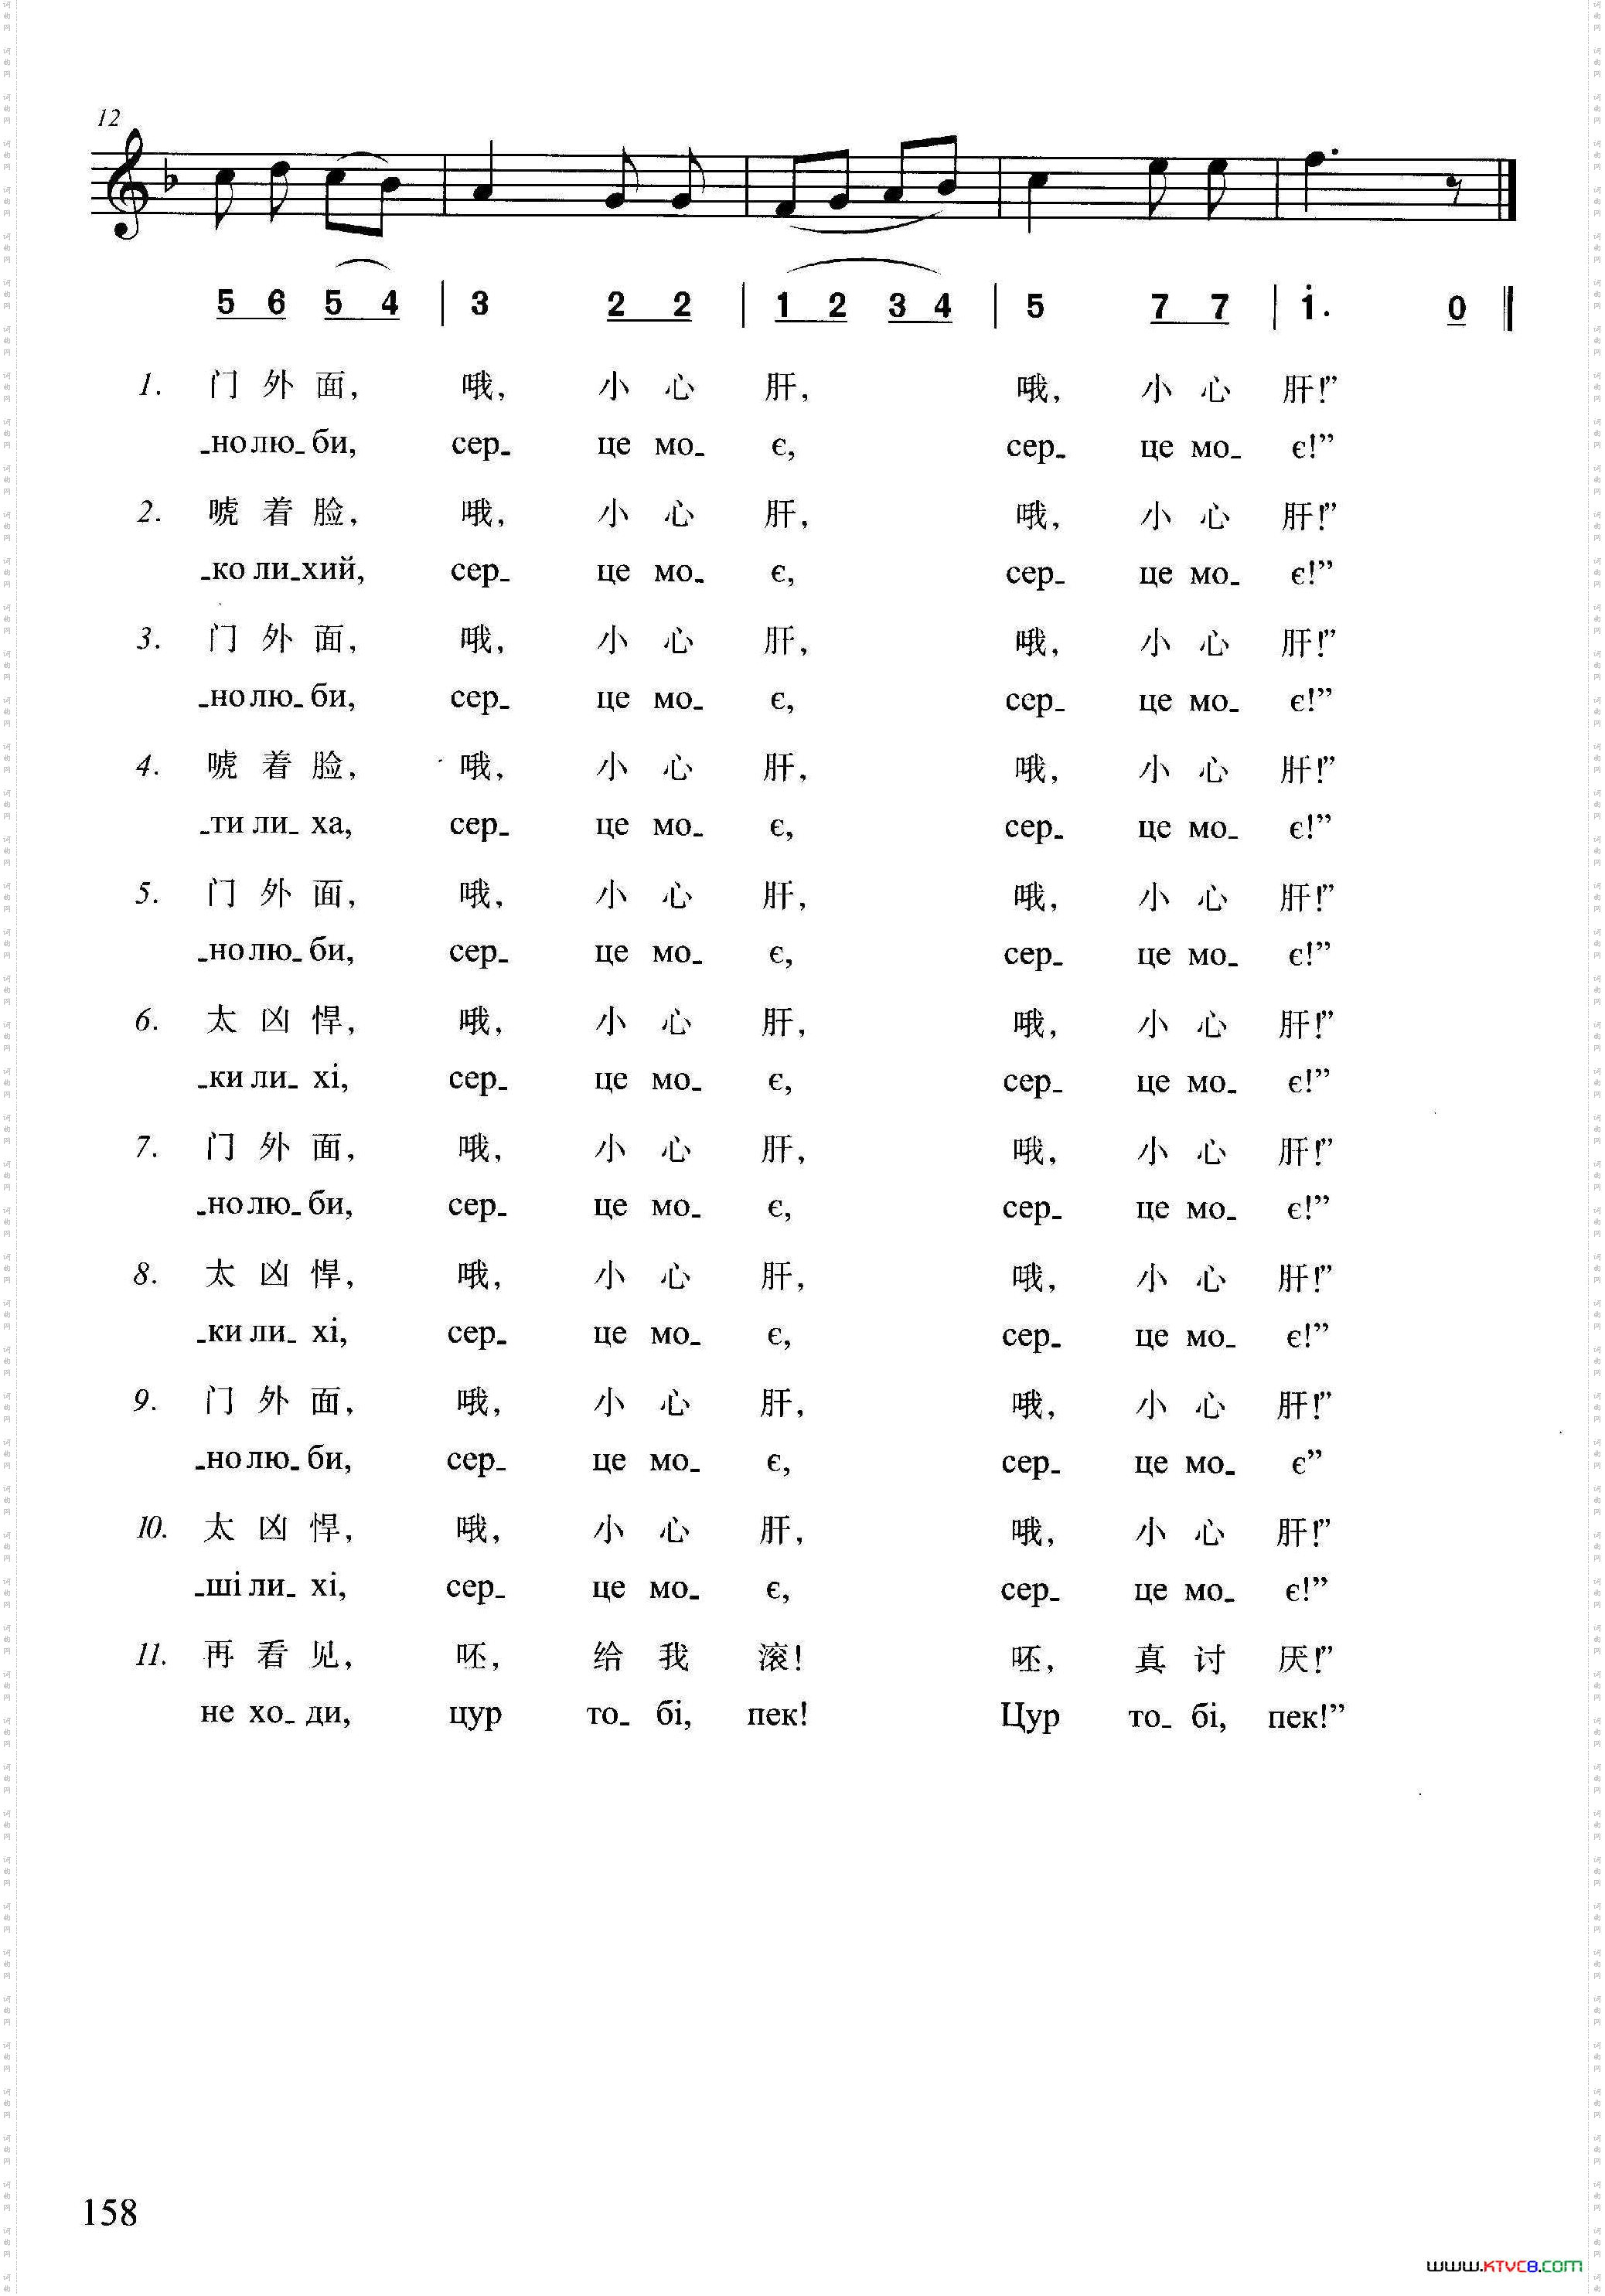 12
5 6 5 4 | 3 2 2 | 1 2 3 4 | 5 7 7 | 1. 0
1. 门 外 面， 哦， 小 心 肝， 哦， 小 心 肝！”
_но лю_ би, сер_ це мо_ є, сер_ це мо_ є!”
2. 唬 着 脸， 哦， 小 心 肝， 哦， 小 心 肝！”
_ко ли_хий, сер_ це мо_ є, сер_ це мо_ є!”
3. 门 外 面， 哦， 小 心 肝， 哦， 小 心 肝！”
_но лю_ би, сер_ це мо_ є, сер_ це мо_ є!”
4. 唬 着 脸， 哦， 小 心 肝， 哦， 小 心 肝！”
_ти ли_ ха, сер_ це мо_ є, сер_ це мо_ є!”
5. 门 外 面， 哦， 小 心 肝， 哦， 小 心 肝！”
_но лю_ би, сер_ це мо_ є, сер_ це мо_ є!”
6. 太 凶 悍， 哦， 小 心 肝， 哦， 小 心 肝！”
_ки ли_ хі, сер_ це мо_ є, сер_ це мо_ є!”
7. 门 外 面， 哦， 小 心 肝， 哦， 小 心 肝！”
_но лю_ би, сер_ це мо_ є, сер_ це мо_ є!”
8. 太 凶 悍， 哦， 小 心 肝， 哦， 小 心 肝！”
_ки ли_ хі, сер_ це мо_ є, сер_ це мо_ є!”
9. 门 外 面， 哦， 小 心 肝， 哦， 小 心 肝！”
_но лю_ би, сер_ це мо_ є, сер_ це мо_ є”
10. 太 凶 悍， 哦， 小 心 肝， 哦， 小 心 肝！”
_ші ли_ хі, сер_ це мо_ є, сер_ це мо_ є!”
11. 再 看 见， 呸， 给 我 滚！ 呸， 真 讨 厌！”
не хо_ ди, цур то_ бі, пек! Цур то_ бі, пек!”
158
www.KTVC8.com